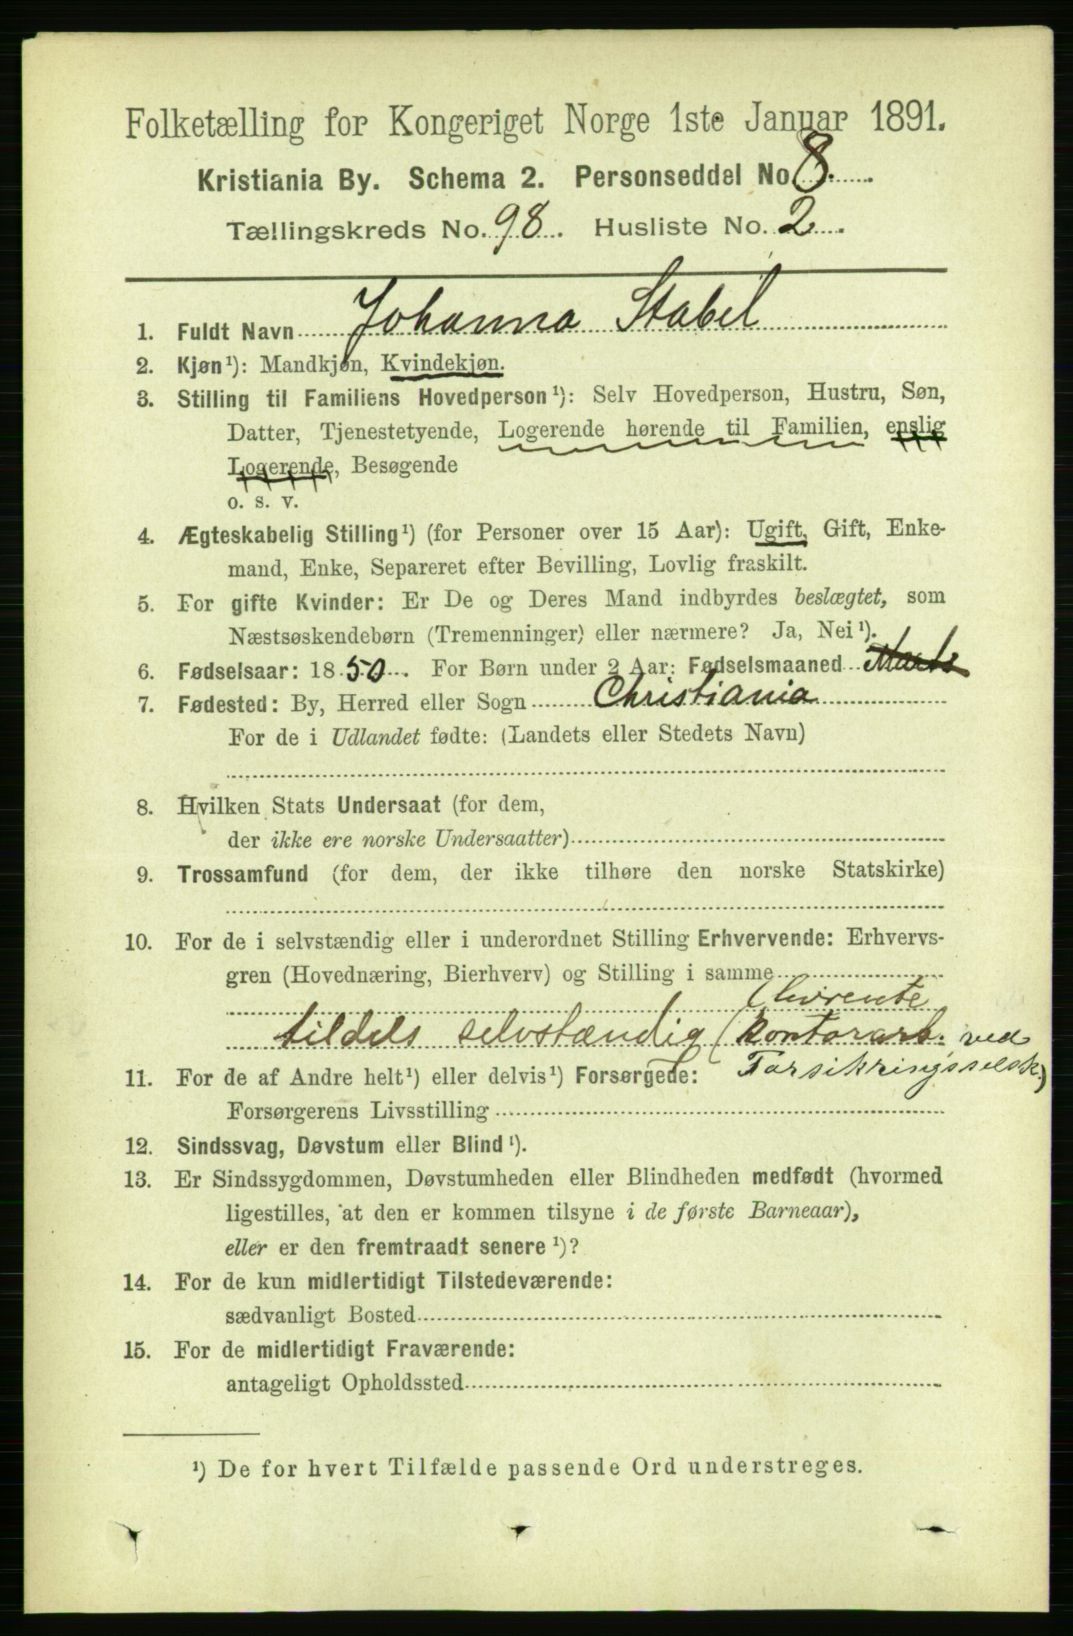 Folketælling for Kongeriget Norge 1ste Januar 1891.
Kristiania By. Schema 2. Personseddel No 8.
Tællingskreds No. 98. Husliste No. 2.
1. Fuldt Navn Johanna Stabel
2. Kjøn ¹): Mandkjøn, Kvindekjøn.
3. Stilling til Familiens Hovedperson ¹): Selv Hovedperson, Hustru, Søn,
Datter, Tjenestetyende, Logerende hørende til Familien, enslig
Logerende, Besøgende
o. s. v.
4. Ægteskabelig Stilling ¹) (for Personer over 15 Aar): Ugift, Gift, Enke-
mand, Enke, Separeret efter Bevilling, Lovlig fraskilt.
5. For gifte Kvinder: Er De og Deres Mand indbyrdes beslægtet, som
Næstsøskendebørn (Tremenninger) eller nærmere? Ja, Nei ¹).
6. Fødselsaar: 1850. For Børn under 2 Aar: Fødselsmaaned Marts
7. Fødested: By, Herred eller Sogn Christiania
For de i Udlandet fødte: (Landets eller Stedets Navn)
8. Hvilken Stats Undersaat (for dem,
der ikke ere norske Undersaatter)
9. Trossamfund (for dem, der ikke tilhøre den norske Statskirke)
10. For de i selvstændig eller i underordnet Stilling Erhvervende: Erhvervs-
gren (Hovednæring, Bierhverv) og Stilling i samme
(livrente
tildels selvstændig (kontorarb. ved
11. For de af Andre helt ¹) eller delvis ¹) Forsørgede: Forsikringsselsk.)
Forsørgerens Livsstilling
12. Sindssvag, Døvstum eller Blind ¹).
13. Er Sindssygdommen, Døvstumheden eller Blindheden medfødt (hvormed
ligestilles, at den er kommen tilsyne i de første Barneaar),
eller er den fremtraadt senere ¹)?
14. For de kun midlertidigt Tilstedeværende:
sædvanligt Bosted
15. For de midlertidigt Fraværende:
antageligt Opholdssted
¹) De for hvert Tilfælde passende Ord understreges.